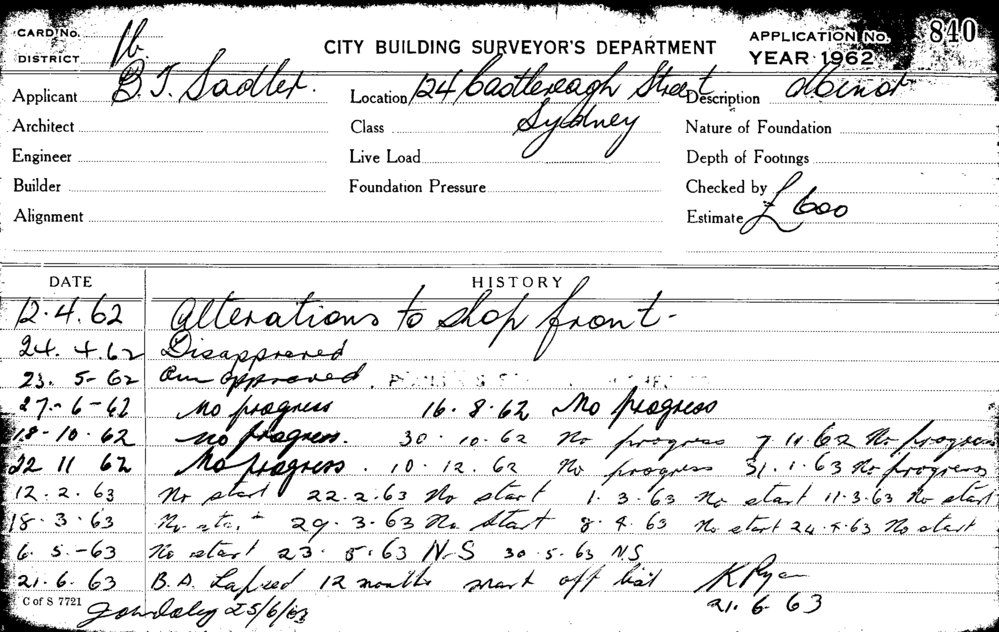 CARD No. 840
DISTRICT 1b CITY BUILDING SURVEYOR'S DEPARTMENT APPLICATION No.
YEAR 1962
Applicant B. J. Sadler. Location 124 Castlereagh Street Description
Architect Class Sydney Nature of Foundation
Engineer Live Load Depth of Footings
Builder Foundation Pressure Checked by
Alignment Estimate £600
DATE HISTORY
12.4.62 Alterations to shop front-
24.4.62 Disapproved
23.5-62 approved
27-6-62 No progress 16.8.62 No progress
18-10.62 No progress. 30.10.62 No progress 7 11.62 No progress
22 11 62 No progress. 10.12.62 No progress 31.1.63 No progress
12.2.63 No start 22.2.63 No start 1.3.63 No start 11.3.63 No start
18.3.63 No start 29.3.63 No Start 8.4.63 No start 24.4.63 No start
6.5.-63 No start 23.5.63 N-S 30.5.63 NS
21.6.63 B.A. Lapsed 12 months mark off list K Ryan
C of S 7721 25/6/63 21.6.63